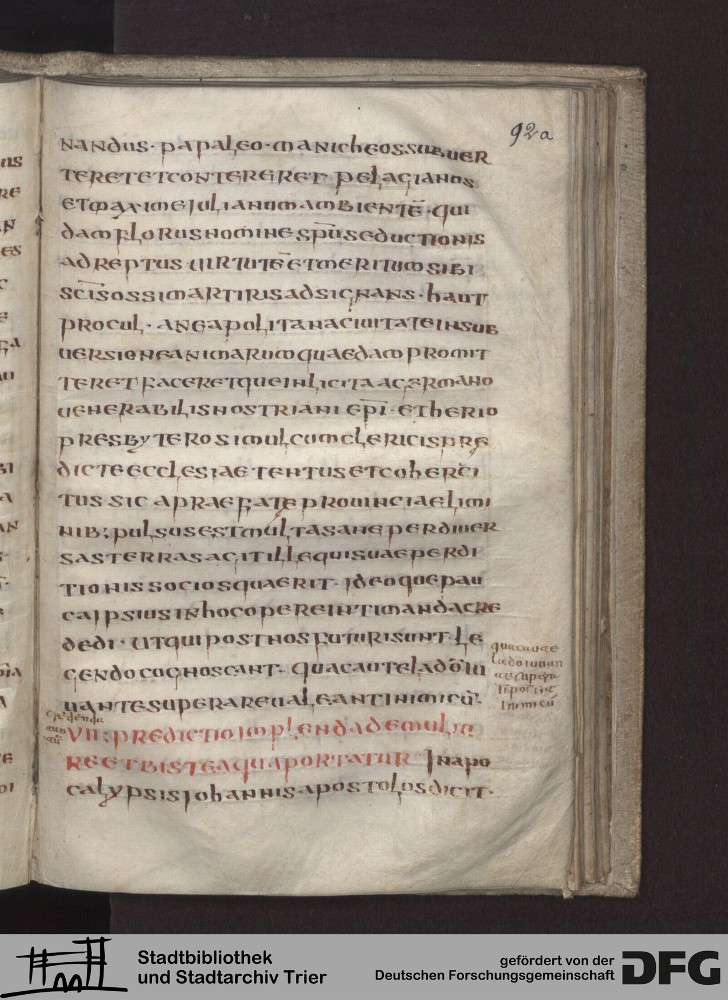 92a
NANDUS· PAPA LEO· MANICHEOS SUBUER
TERET ET CONTERERET· PELAGIANOS
ET MAXIME IULIANUM AMBIENTĒ· QUI
DAM FLORUS NOMINE SPŪ SEDUCTIONIS
ADREPTUS UIRTUTĒ ET MERITUM SIBI
SCĪ SOSSI MARTIRIS ADSIGNANS· HAUT
PROCUL· A NEAPOLITANA CIUITATE IN SUB
UERSIONE ANIMARUM QUAEDAM PROMIT
TERET FACERETQUE INLICITA AC GERMANO
UENERABILIS NOSTRI ANI EPĪ· ETHERIO
PRESBYTERO SIMUL CUM CLERICIS PRE
DICTE ECCLESIAE TENTUS ET COHERCI
TUS SIC A PRAEFATE PROUINCIAE LIMI
NIB; PULSUS EST MULTA SANE PER DIUER
SAS TERRAS AGIT ILLE QUI SUAE PERDI
TIONIS SOCIOS QUAERIT· IDEOQUE PAU
CA IPSIUS IN HOC OPERE INTIMANDA CRE
DEDI· UT QUI POST NOS FUTURI SUNT· LE
GENDO COGNOSCANT· QUA CAUTELA DŌ IU
UANTE SUPERARE UALEANT INIMICŪ·
VII: PREDICTIO IMPLENDA DE MULIE
RE ET BISTEA QUA PORTATUR IN APO
CALYPSIS IOHANNIS APOSTOLUS DICIT·
Stadtbibliothek
und Stadtarchiv Trier
gefördert von der
Deutschen Forschungsgemeinschaft
DFG